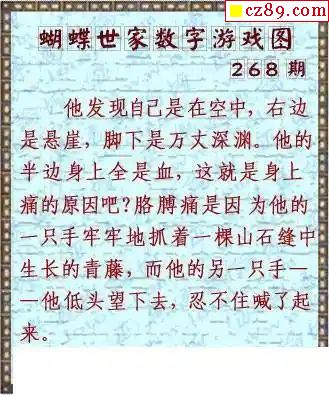 cz89.com
蝴蝶世家数字游戏图
268期
他发现自己是在空中，右边
是悬崖，脚下是万丈深渊。他的
半边身上全是血，这就是身上
痛的原因吧?胳膊痛是因为他的
一只手牢牢地抓着一棵山石缝中
生长的青藤，而他的另一只手—
—他低头望下去，忍不住喊了起
来。